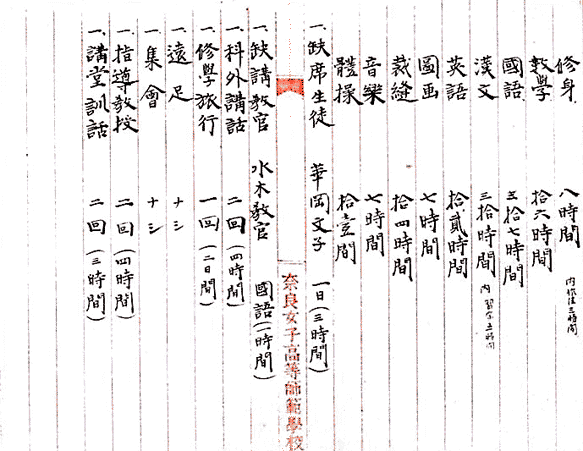 修身 八時間 内作法三時間
数學 拾六時間
國語 五拾七時間
漢文 三拾時間 内習字五時間
英語 拾貳時間
圖画 七時間
裁縫 拾四時間
音樂 七時間
體操 拾壹間
一、缺席生徒 華岡文子 一日(三時間)
奈良女子高等師範學校
一、缺講教官 水木教官 國語(一時間)
一、科外講話 二回(四時間)
一、修學旅行 一回(二日間)
一、遠足 ナシ
一、集會 ナシ
一、指導教授 二回(四時間)
一、講堂訓話 二回(三時間)